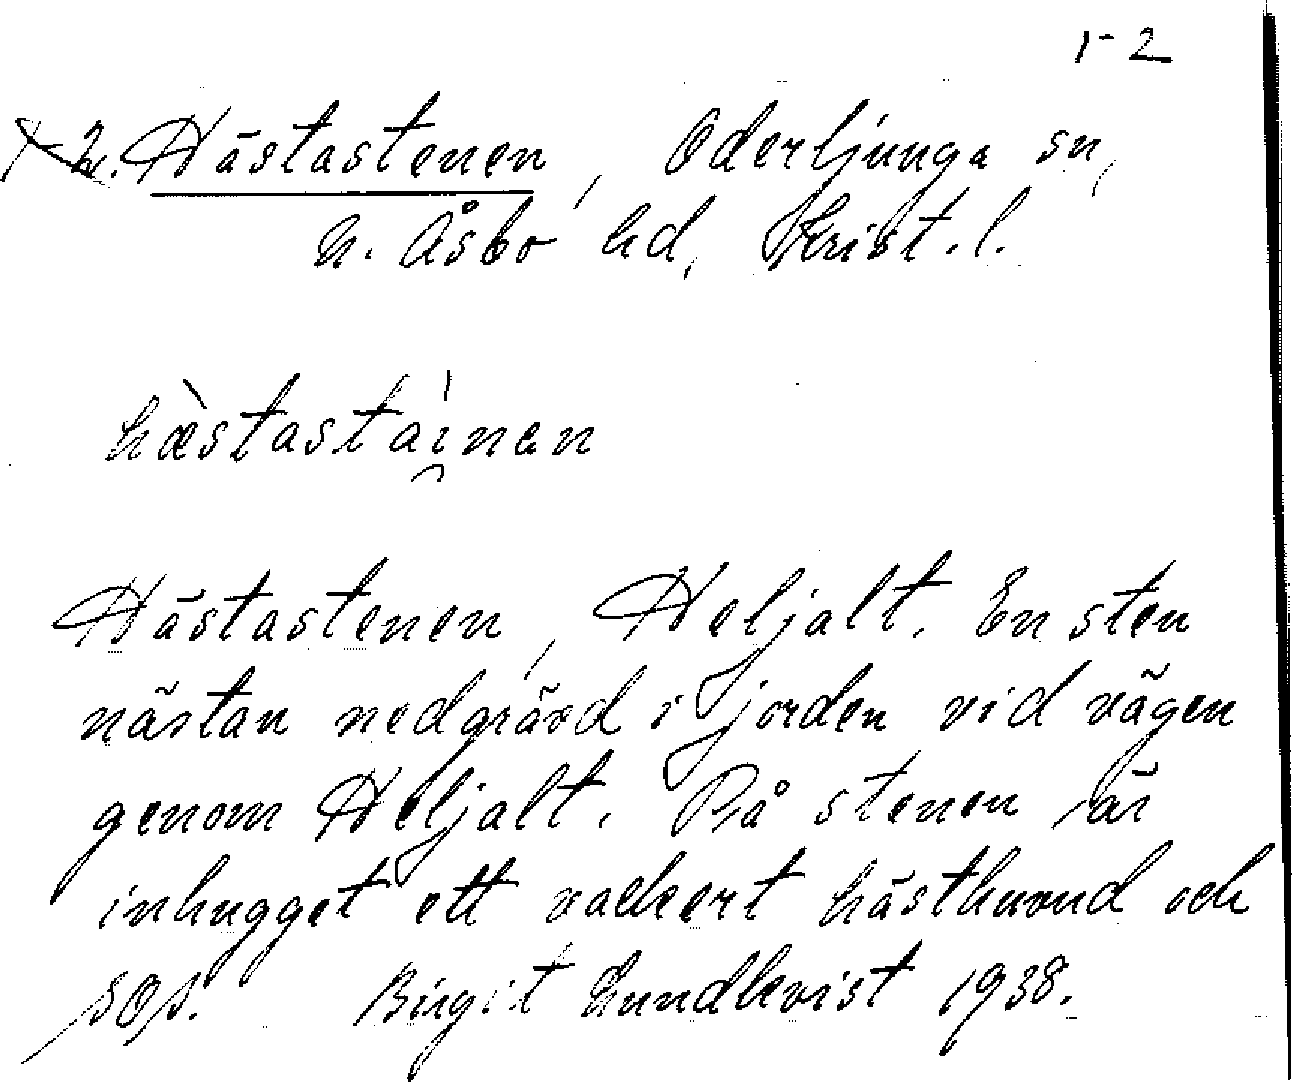 1-2
1-2. Hästastenen, Oderljunga sn,
N. Åsbo hd, Krist. l.
hæ̀stastái̯nan
Hästastenen, Heljalt. En sten
nästan nedgrävd i jorden vid vägen
genom Heljalt. På stenen är
inhugget ett vackert hästhuvud och
Birgit Lundkvist 1938.